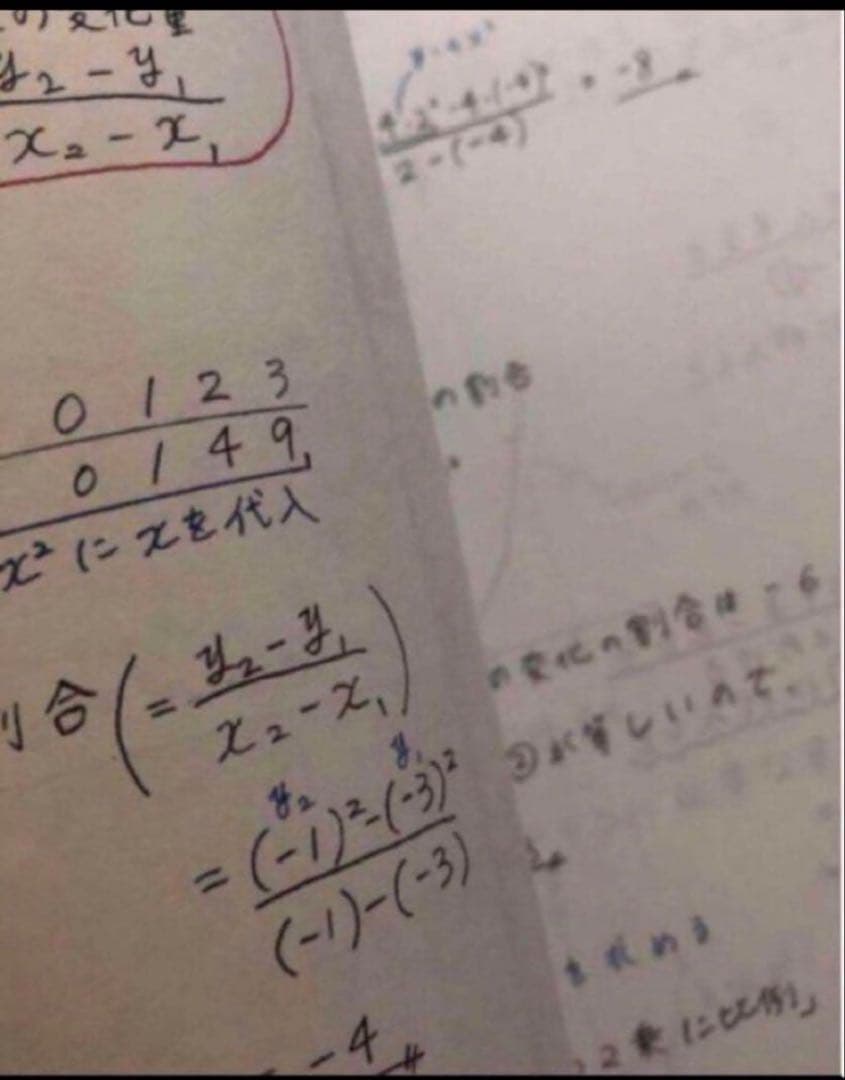 の変化量
y₂-y₁
x₂-x₁
0 1 2 3
0 1 4 9
x²にxを代入
割合(= y₂-y₁
x₂-x₁)
y₂ y₁
= (-1)²-(-3)²
(-1)-(-3)
= -4
4・2²-4・(-4)²
2-(-4)
= -8
の割合
の変化の割合は-6
②が等しいので、
を求める
2乗に比例」